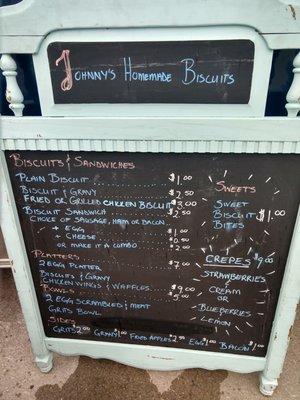 Johnny's Homemade Biscuits
Biscuits & Sandwiches
Plain Biscuit $1.00
Biscuit & Gravy $2.50
Fried or Grilled Chicken Biscuit $3.00
Biscuit Sandwich $2.50
Choice of Sausage, Ham, or Bacon
+ Egg $1.00
+ Cheese $0.50
or make it a Combo $2.00
Platters
2 Egg Platter $7.00
Biscuits & Gravy
Chicken Wings & Waffles $9.00
Bowls $5.00
2 Eggs Scrambled & Meat
Grits Bowl
Sides
Grits 2.00 Gravy 1.00 Fried Apples 2.50 Egg 1.00 Bacon 1.00
Sweets
Sweet
Biscuit $1.00
Bites
Crepes $9.00
Strawberries
&
Cream
or
Blueberries
Lemon